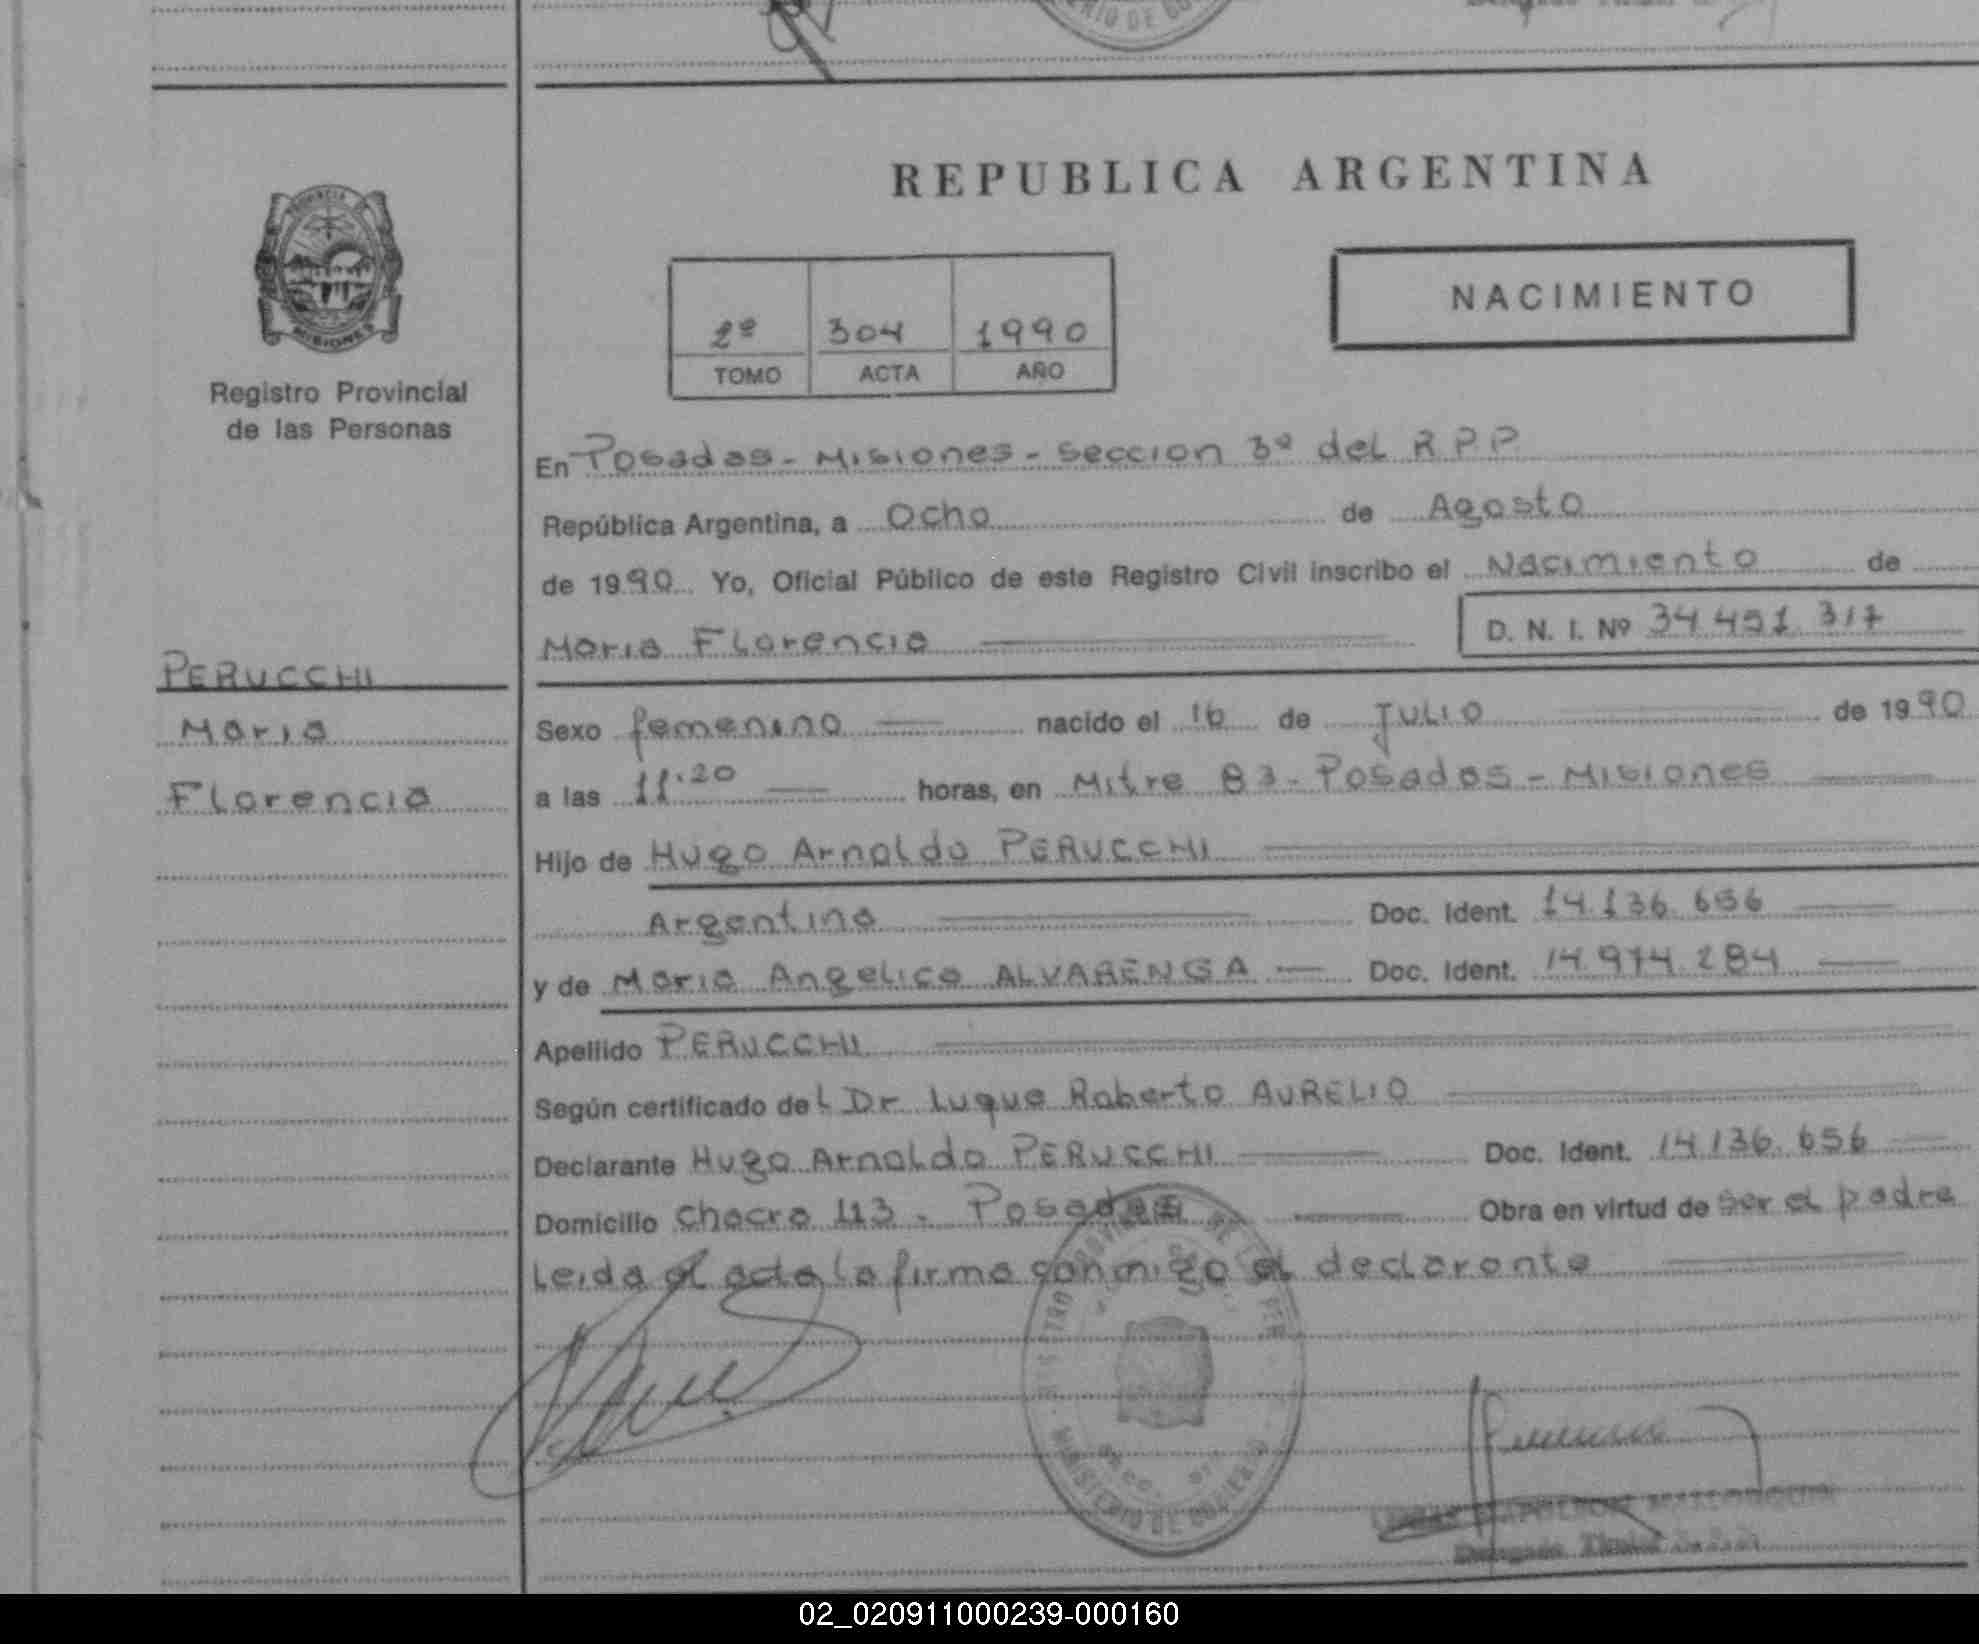 REPUBLICA ARGENTINA
PROVINCIA DE
MISIONES
Registro Provincial
de las Personas
2º 304 1990
TOMO ACTA AÑO
NACIMIENTO
En Posadas - Misiones - Seccion 3ª del R.P.P.
República Argentina, a Ocho de Agosto
de 1990 Yo, Oficial Público de este Registro Civil inscribo el Nacimiento de
Maria Florencia D. N. I. Nº 34.451.317
PERUCCHI
Maria
Florencia
Sexo femenino nacido el 16 de Julio de 1990
a las 11.20 horas, en Mitre 83 - Posadas - Misiones
Hijo de Hugo Arnaldo PERUCCHI
Argentina Doc. Ident. 14.136.656
y de Maria Angelica ALVARENGA Doc. Ident. 14.974.284
Apellido PERUCCHI
Según certificado del Dr Luque Roberto AURELIO
Declarante Hugo Arnaldo PERUCCHI Doc. Ident. 14.136.656
Domicilio Chacra 43 - Posadas Obra en virtud de ser el padre
Leida el acta la firma conmigo el declarante
MINISTERIO DE GOBIERNO
02_020911000239-000160